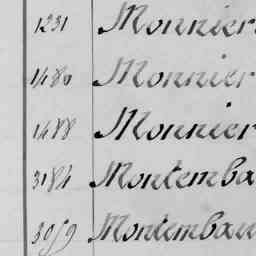 1231 Monnier
1480 Monnier
1488 Monnier
3184 Montemba
3059 Montembau